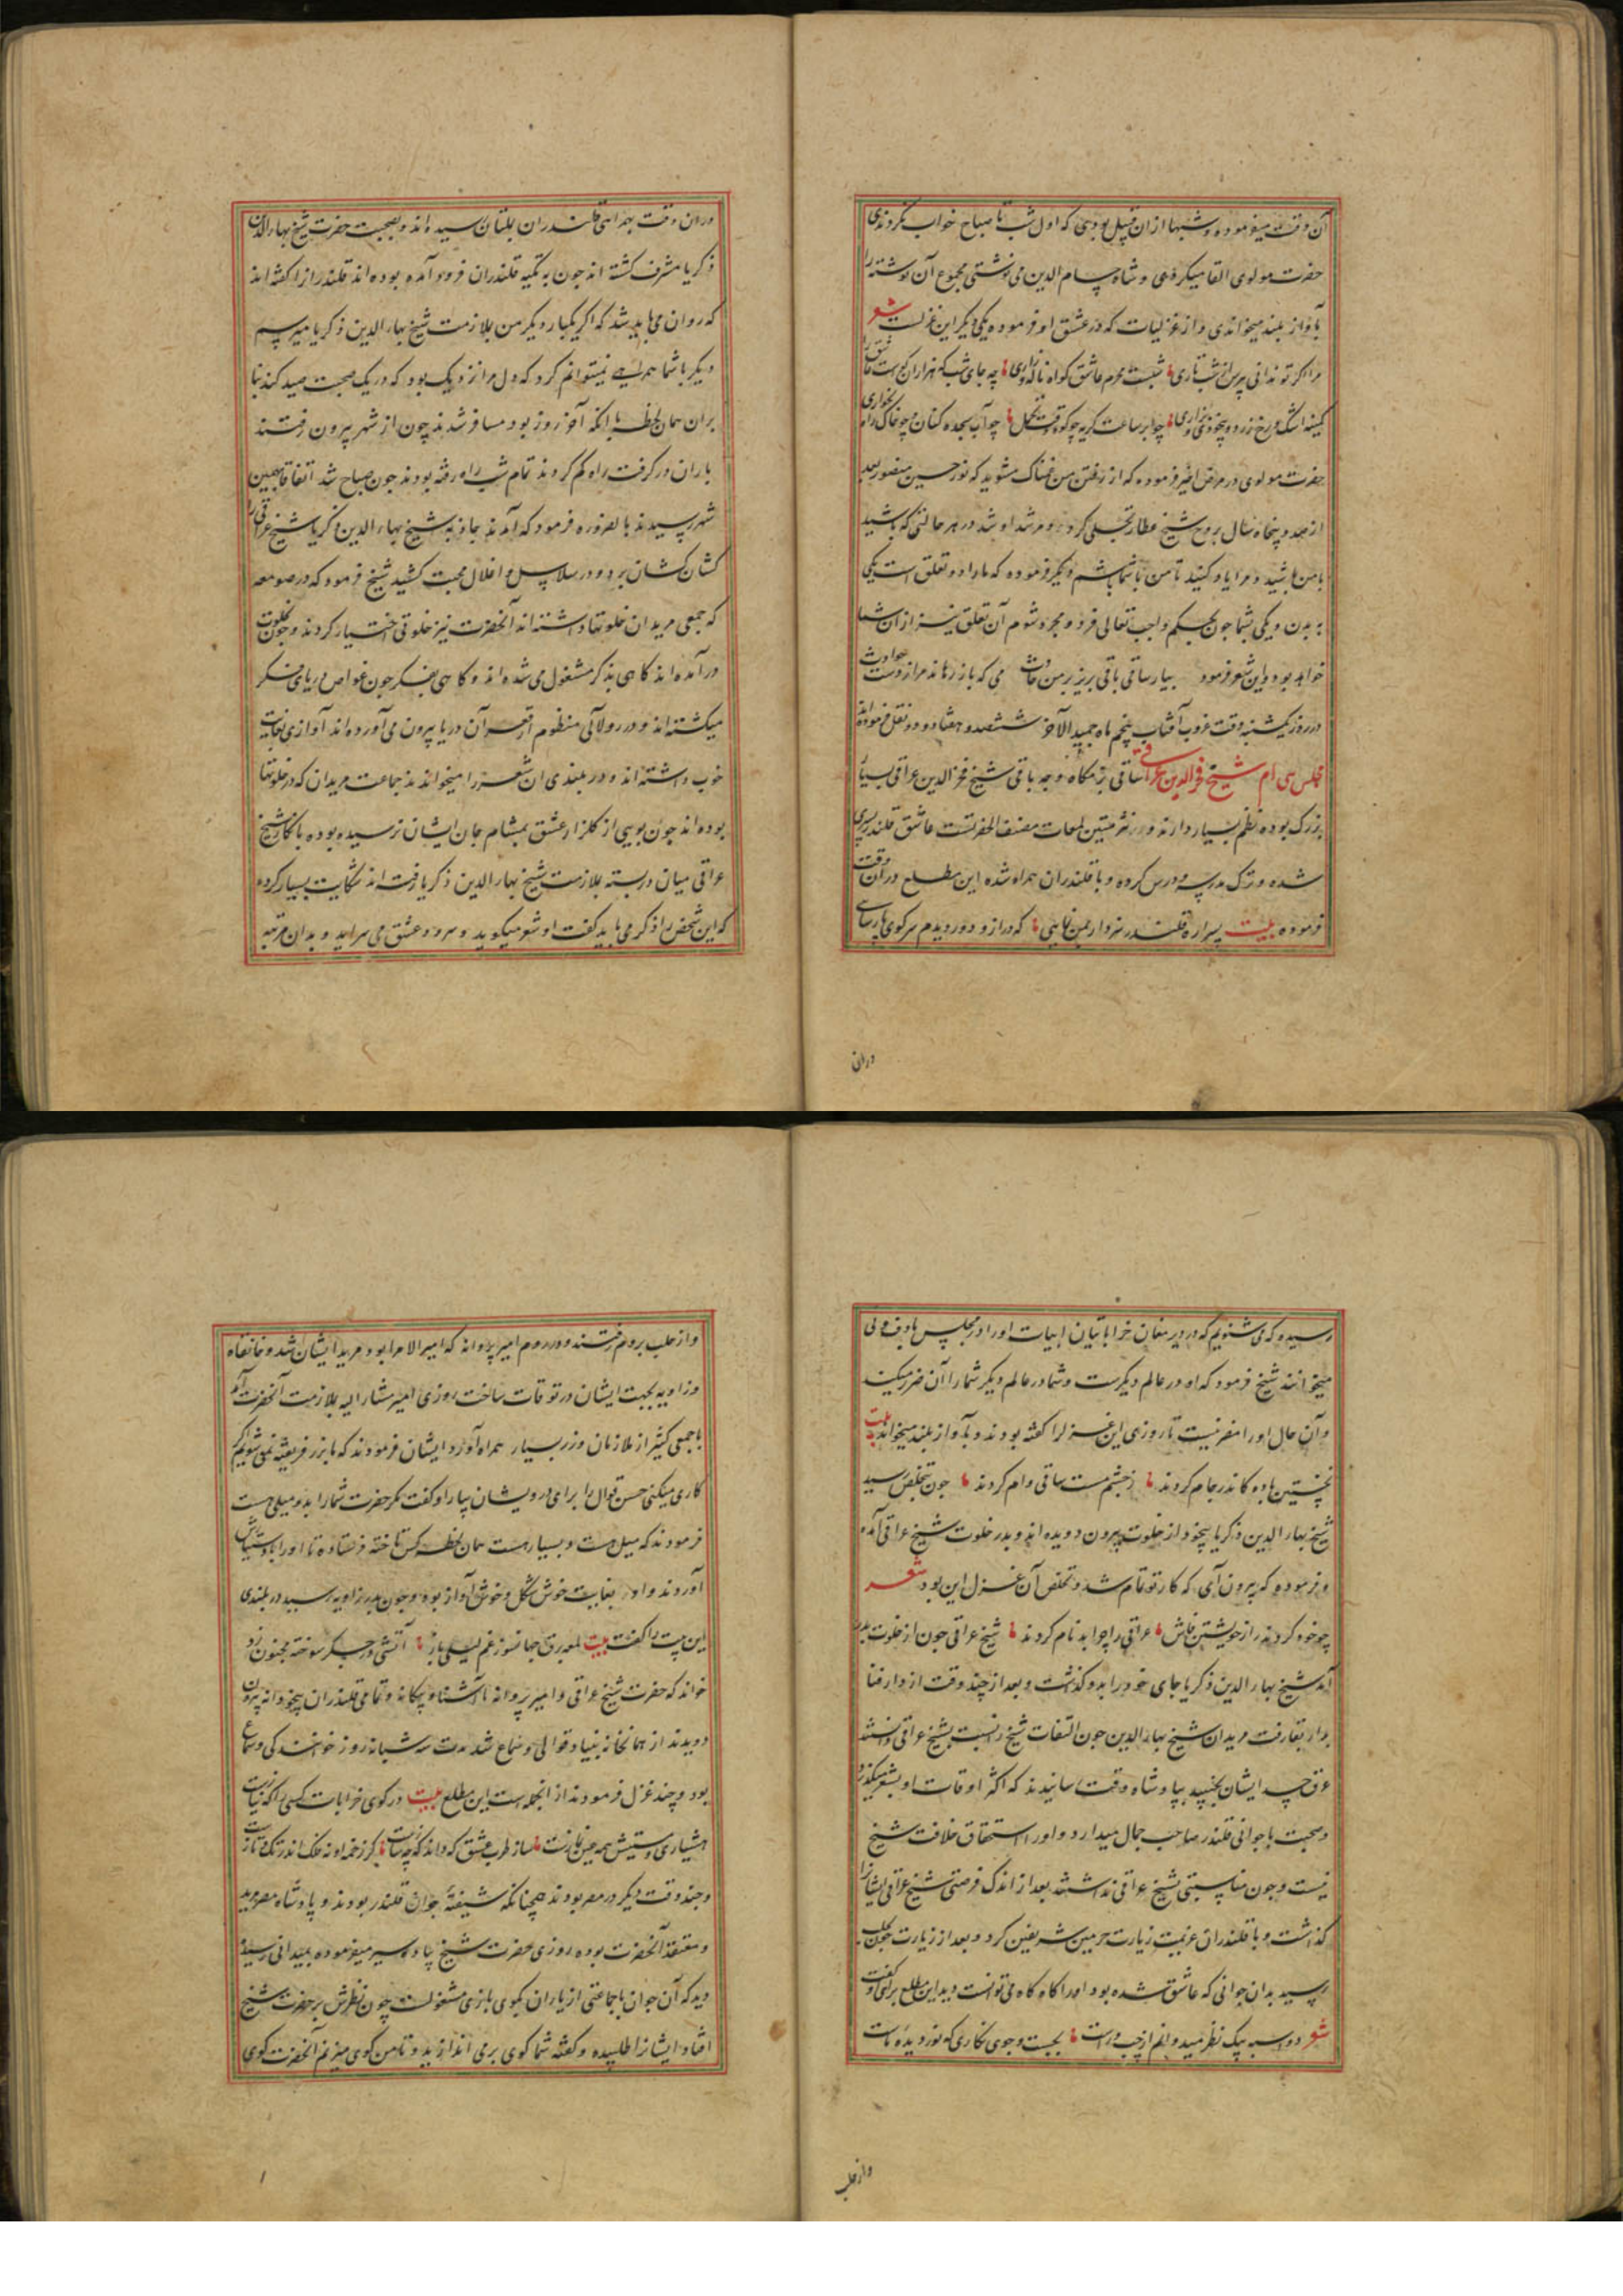 آن وقت میفرموده و شبها از ان قبیل بودی که اول شب تا صباح خواب نکردندی
حضرت مولوی القا میکردی و شاه حسام الدین می نوشتی مجموع آن نوشته را
بآواز بلند میخواندی و از غزلیات که در عشق او فرموده یکی دیگر این غزلست شعر
مرا اگر تو ندانی بپرس از شب تاری شبست محرم عاشق گواه ناله و زاری چه جای شب که هزاران گواه هست عاشق را
کمینه اشک و رخ زرد و بیخودی و نزاری چو ابر ساعت گریه چو کوه وقت تحمل چو آب سجده کنان چو خاک راه بخواری
حضرت مولوی در مرض اخیر فرموده که از رفتن من غمناک مشوید که نور حسین منصور بعد
از صد و پنجاه سال بروح شیخ عطار تجلی کرد و مرشد او شد در هر حالتی که باشید
با من باشید و مرا یاد کنید تا من با شما باشم و دیگر فرموده که ما را دو تعلق است یکی
به بدن و یکی بشما چون بحکم واجب تعالی فرد و مجرد شوم آن تعلق نیز از ان شما
خواهد بود و این شعر فرمود بیار ساقی باقی بریز بر من می که باز رهاند مرا ز دست حوادث
در روز یکشنبه وقت غروب آفتاب پنجم ماه جمید الآخر ششصد و هفتاد و دو نقل فرموده اند
مجلس سی ام شیخ فخر الدین عراقی ساقی بزمگاه وجه باقی شیخ فخر الدین عراقی بسیار
بزرگ بوده نظم بسیار دارند و در نثر متین لمعات مصنف الحضرتست عاشق قلندر پسری
شده و ترک مدرسه و درس کرده و با قلندران همراه شده این مطلع در آن وقت
فرموده بیت پسرا ره قلندر سزد ار بمن نمایی که دراز و دور دیدم سر کوی پارسایی
دران
دران وقت بهمراهی قلندران بملتان رسیده اند و بصحبت حضرت شیخ بهاء الدین
ذکریا مشرف گشته اند چون به تکیه قلندران فرود آمده بوده اند قلندرانرا گفته اند
که روان می باید شد که اگر یکبار دیگر من بملازمت شیخ بهار الدین ذکریا میرسم
دیگر با شما همراهی نمیتوانم کرد که دل مرا نزدیک بود که در یک صحبت صید کند بنا
بران همان لحظه با انکه آخر روز بود مسافر شدند چون از شهر بیرون رفتند
باران در گرفت راه گم کردند تمام شب راه رفته بودند چون صباح شد اتفاقا بهمین
شهر رسیدند بالضروره فرمود که آمدند جاذبه شیخ بهاء الدین ذکریا شیخ عراقی را
کشان کشان برد و در سلاسل و اغلال محبت کشید شیخ فرمود که در صومعه
که جمعی مریدان خلوتها داشته اند آنحضرت نیز خلوتی اختیار کردند و چون بخلوت
در آمده اند گاهی بذکر مشغول می شده اند و گاهی بفکر چون غواص دریای فکر
میگشته اند و در رو لآلی منظوم از قعر آن دریا بیرون می آورده اند آوازی بغایت
خوب داشته اند و در بلندی ان شعر را میخوانده اند جماعت مریدان که در خلوتها
بوده اند چون بویی از گلزار عشق بمشام جان ایشان نرسیده بوده بانکار شیخ
عراقی میان در بسته بملازمت شیخ بهار الدین ذکریا رفته اند شکایت بسیار کرده
که این شخص را ذکر می باید گفت او شعر میگوید و سرود عشق می سراید و بدان مرتبه
رسیده که می شنویم که در دیر مغان خراباتیان ابیات او را در مجلس با دف و نی
میخوانند شیخ فرمود که او در عالم دیگرست و شما در عالم دیگر شما را آن ضرر میکند
و آن حال او را مضر نیست تا روزی این غزل را گفته بودند و بآواز بلند میخواندند بیت
نخستین باده کاندر جام کردند ز چشم مست ساقی وام کردند چون بتخلص رسید
شیخ بهار الدین ذکریا بیخود از خلوت بیرون دویده اند و بدر خلوت شیخ عراقی آمده
و فرموده که بیرون آی که کار تو تمام شد و تخلص آن غزل این بود شعر
چو خود کردند راز خویشتن فاش عراقی را چرا بد نام کردند شیخ عراقی چون از خلوت بدر
آمد شیخ بهار الدین ذکریا جای خود را بدو گذاشت و بعد از چند وقت از دار فنا
بدار بقا رفت مریدان شیخ بهار الدین چون التفات شیخ را نسبت بشیخ عراقی دانستند
عرق حسد ایشان بجنبید بپادشاه وقت رسانیدند که اکثر اوقات او بشعر میگذرد
و صحبت با جوانی قلندر صاحب جمال میدارد و او را استحقاق خلافت شیخ
نیست و چون مناسبتی بشیخ عراقی نداشتند بعد از اندک فرصتی شیخ عراقی ایشان را
گذاشت و با قلندران عزیمت زیارت حرمین شریفین کرد و بعد از زیارت چون بحلب
رسید بدان جوانی که عاشق شده بود او را گاه گاه می توانست دید این مطلع برای او گفت
شعر دو اسبه پیک نظر میدوانم از چپ و راست بجست و جوی نگاری که نور دیده ماست
و از حلب
و از حلب بروم رفتند و در روم امیر پروانه که امیر الامرا بود مرید ایشان شد و خانقاه
و زاویه بجهت ایشان در توقات ساخت روزی امیر مشار الیه بملازمت آنحضرت آمد
با جمعی کثیر از ملازمان و زر بسیار همراه آورد ایشان فرمودند که ما بزر فریفته نمی شویم اگر
کاری میکنی حسن قوال را برای درویشان بیار او گفت مگر حضرت شما را بدو میلی هست
فرمودند که میل هست و بسیار هست همان لحظه کس تاخته فرستاده تا او را باد ستیاش
آوردند و او بغایت خوش شکل و خوش آواز بوده و چون بدر زاویه رسید در بلندی
این بیت را گفت بیت لمعه برق جهانسوز غم لیلی باز آتشی در جگر سوخته مجنون زد
خواند که حضرت شیخ عراقی و امیر پروانه با آشنا و بیگانه و تمامی قلندران بیخودانه بیرون
دویدند از همانخانه بنیاد قوالی و سماع شد مدت سه شبانه روز خوانندگی و سماع
بود و چند غزل فرمودند از انجمله است این مطلع بیت در کوی خرابات کسی را که نیازست
هشیاری و مستیش همه عین نمازست ساز طرب عشق که داند که چه سازست کز زخمه او نه فلک اندر تک و تازست
و چند وقت دیگر در مصر بودند همچنانکه شیفته جوان قلندر بودند و پادشاه مصر مرید
و معتقد آنحضرت بوده روزی حضرت شیخ پیاده سیر میفرموده بمیدانی رسیده
دید که آن جوان با جماعتی از یاران بگوی بازی مشغولست چون نظرش بر حضرت شیخ
افتاد ایشانرا طلبیده و گفته شما گوی بر می اندازید و تا من گوی میزنم آنحضرت گوی